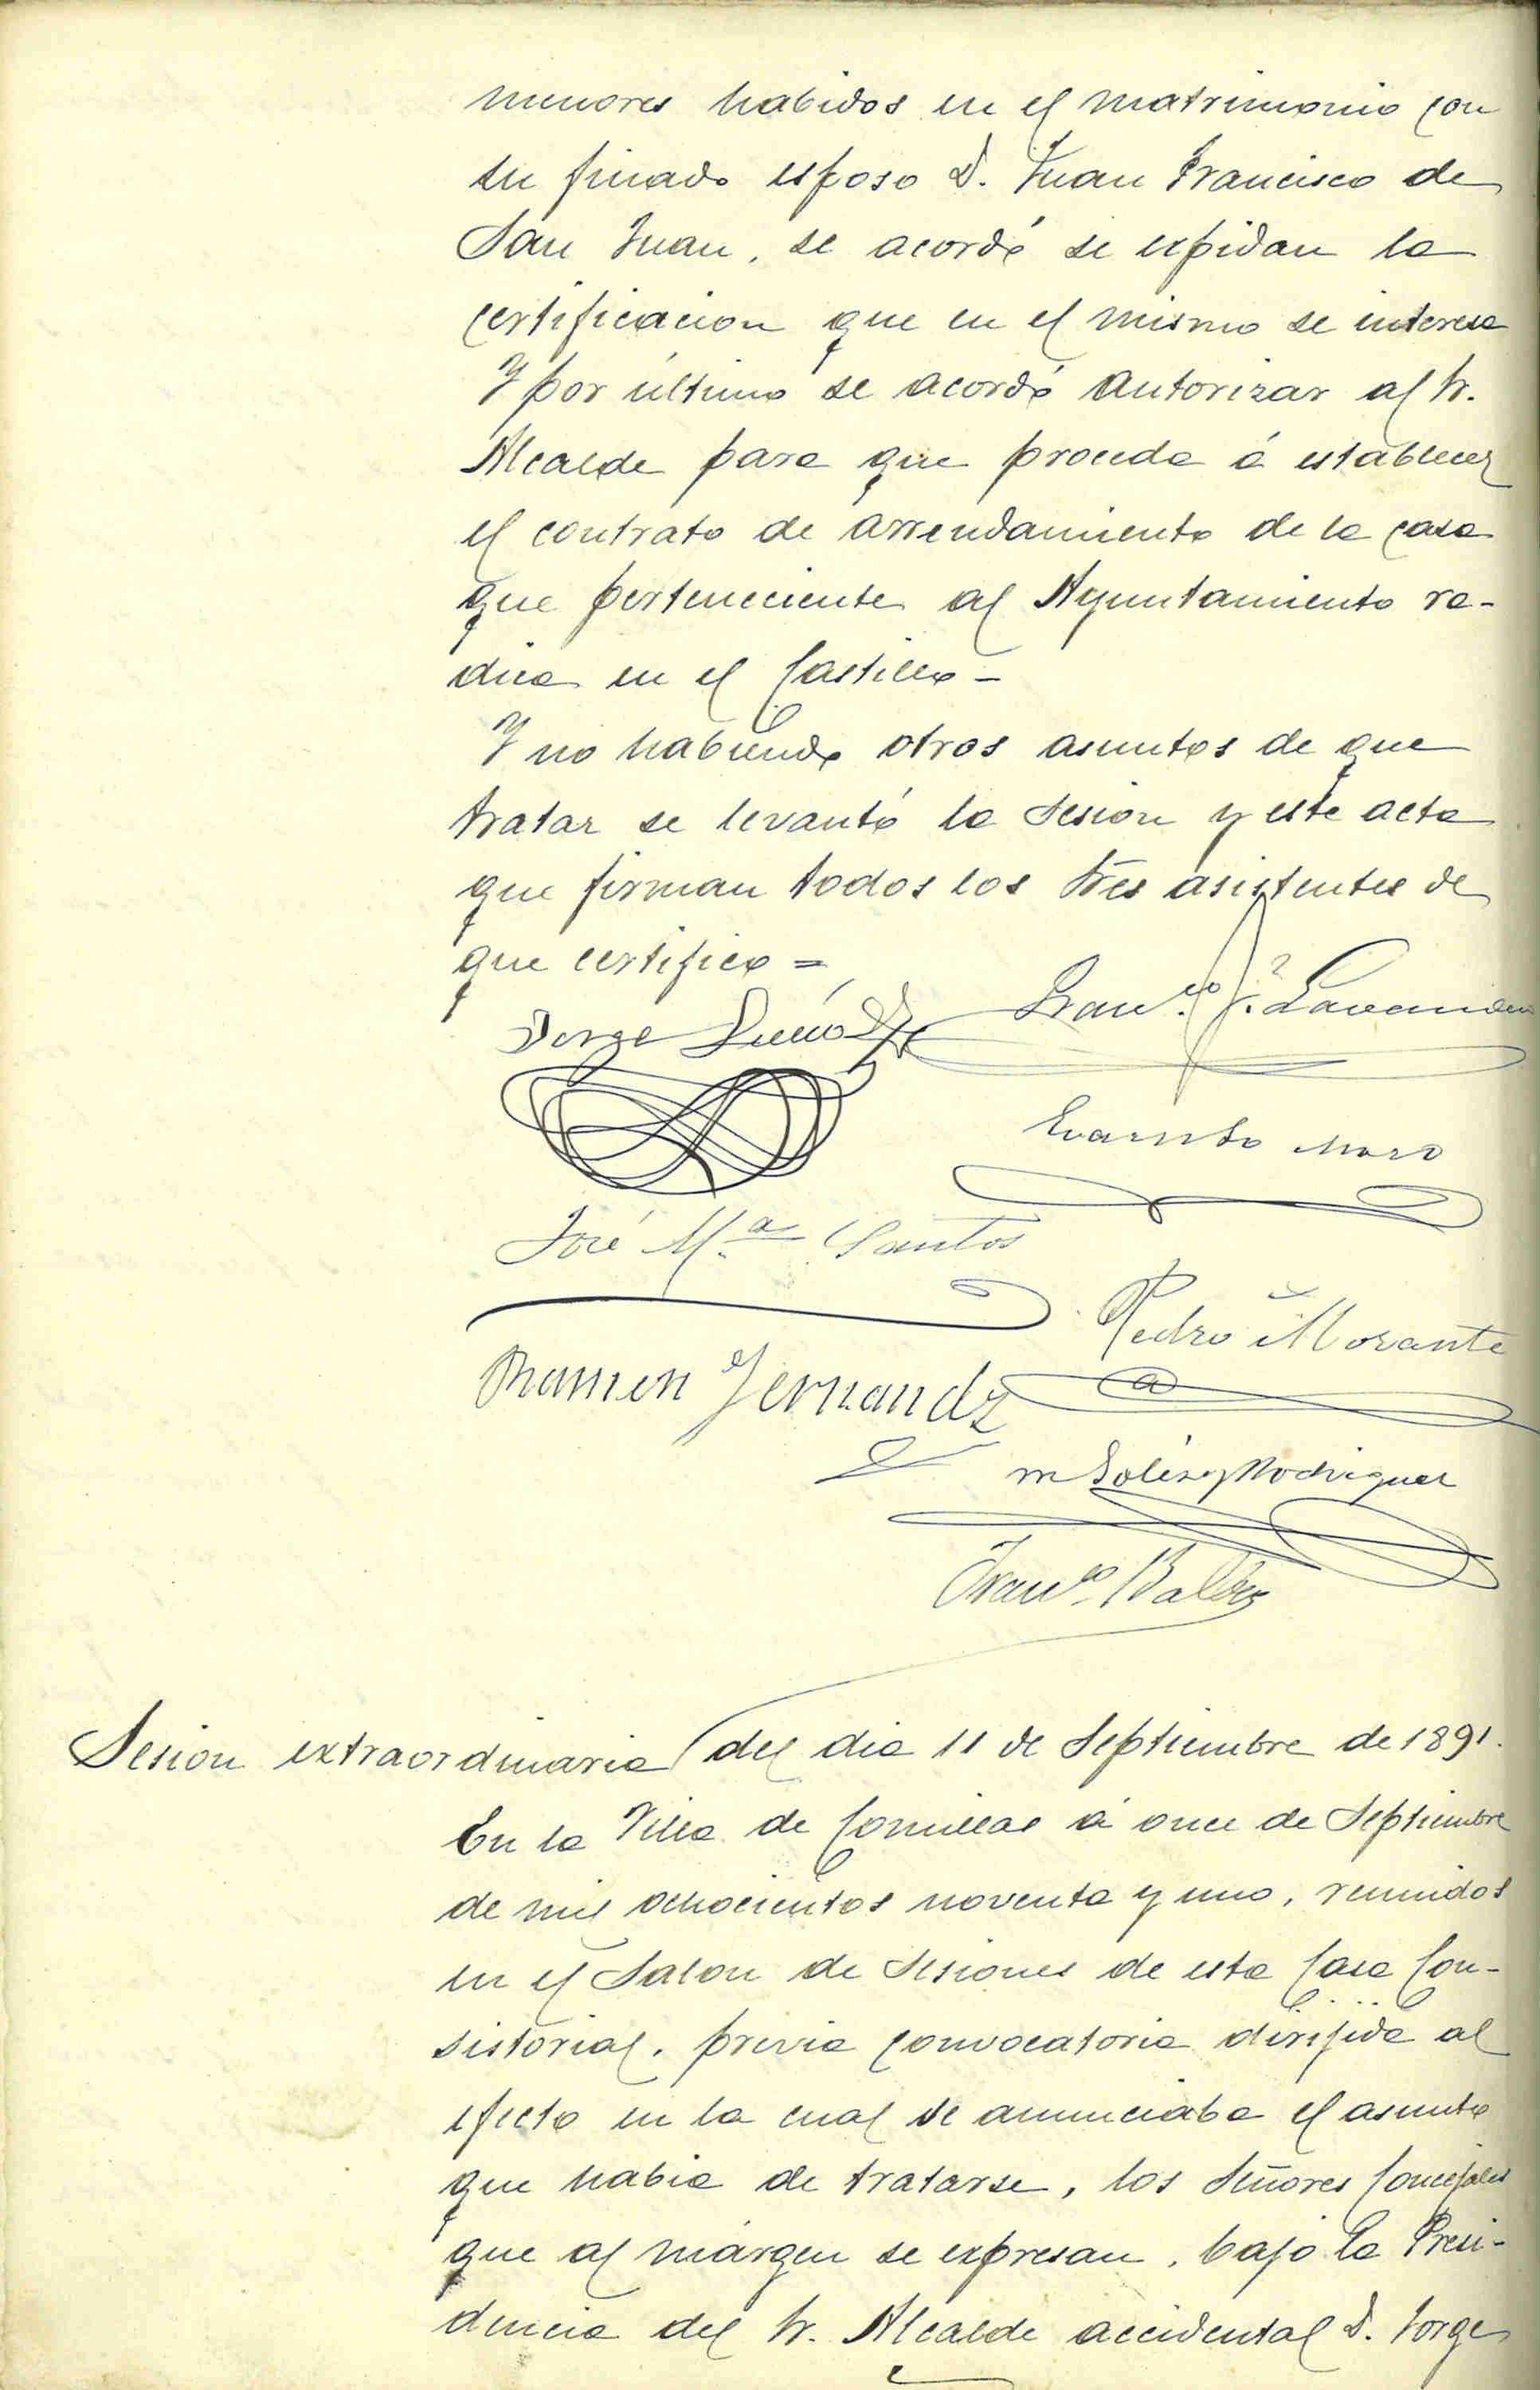 menores habidos en el matrimonio con
su finado esposo D. Juan Francisco de
San Juan, se acordó se expidan la
certificacion que en el mismo se interesa
Y por último se acordó autorizar al Sr.
Alcalde para que proceda á establecer
el contrato de arrendamiento de la casa
que perteneciente al Ayuntamiento ra-
dica en el Castillo -
Y no habiendo otros asuntos de que
tratar se levantó la Sesion y este acta
que firman todos los Sres asistentes de
que certifico =
Jorge
Franco.
Evaristo Moro
José M.a Santos
Pedro Morante
Ramon Fernandz
M Solis y Rodriguez
Franco.
Sesion extraordinaria del dia 11 de Septiembre de 1891.
En la Villa de Comillas á once de Septiembre
de mil ochocientos noventa y uno, reunidos
en el Salon de Sesiones de esta Casa Con-
sistorial, previa convocatoria dirijida al
efecto en la cual se anunciaba el asunto
que habia de tratarse, los Señores Concejales
que al márgen se expresan, bajo la Presi-
dencia del Sr. Alcalde accidental D. Jorge